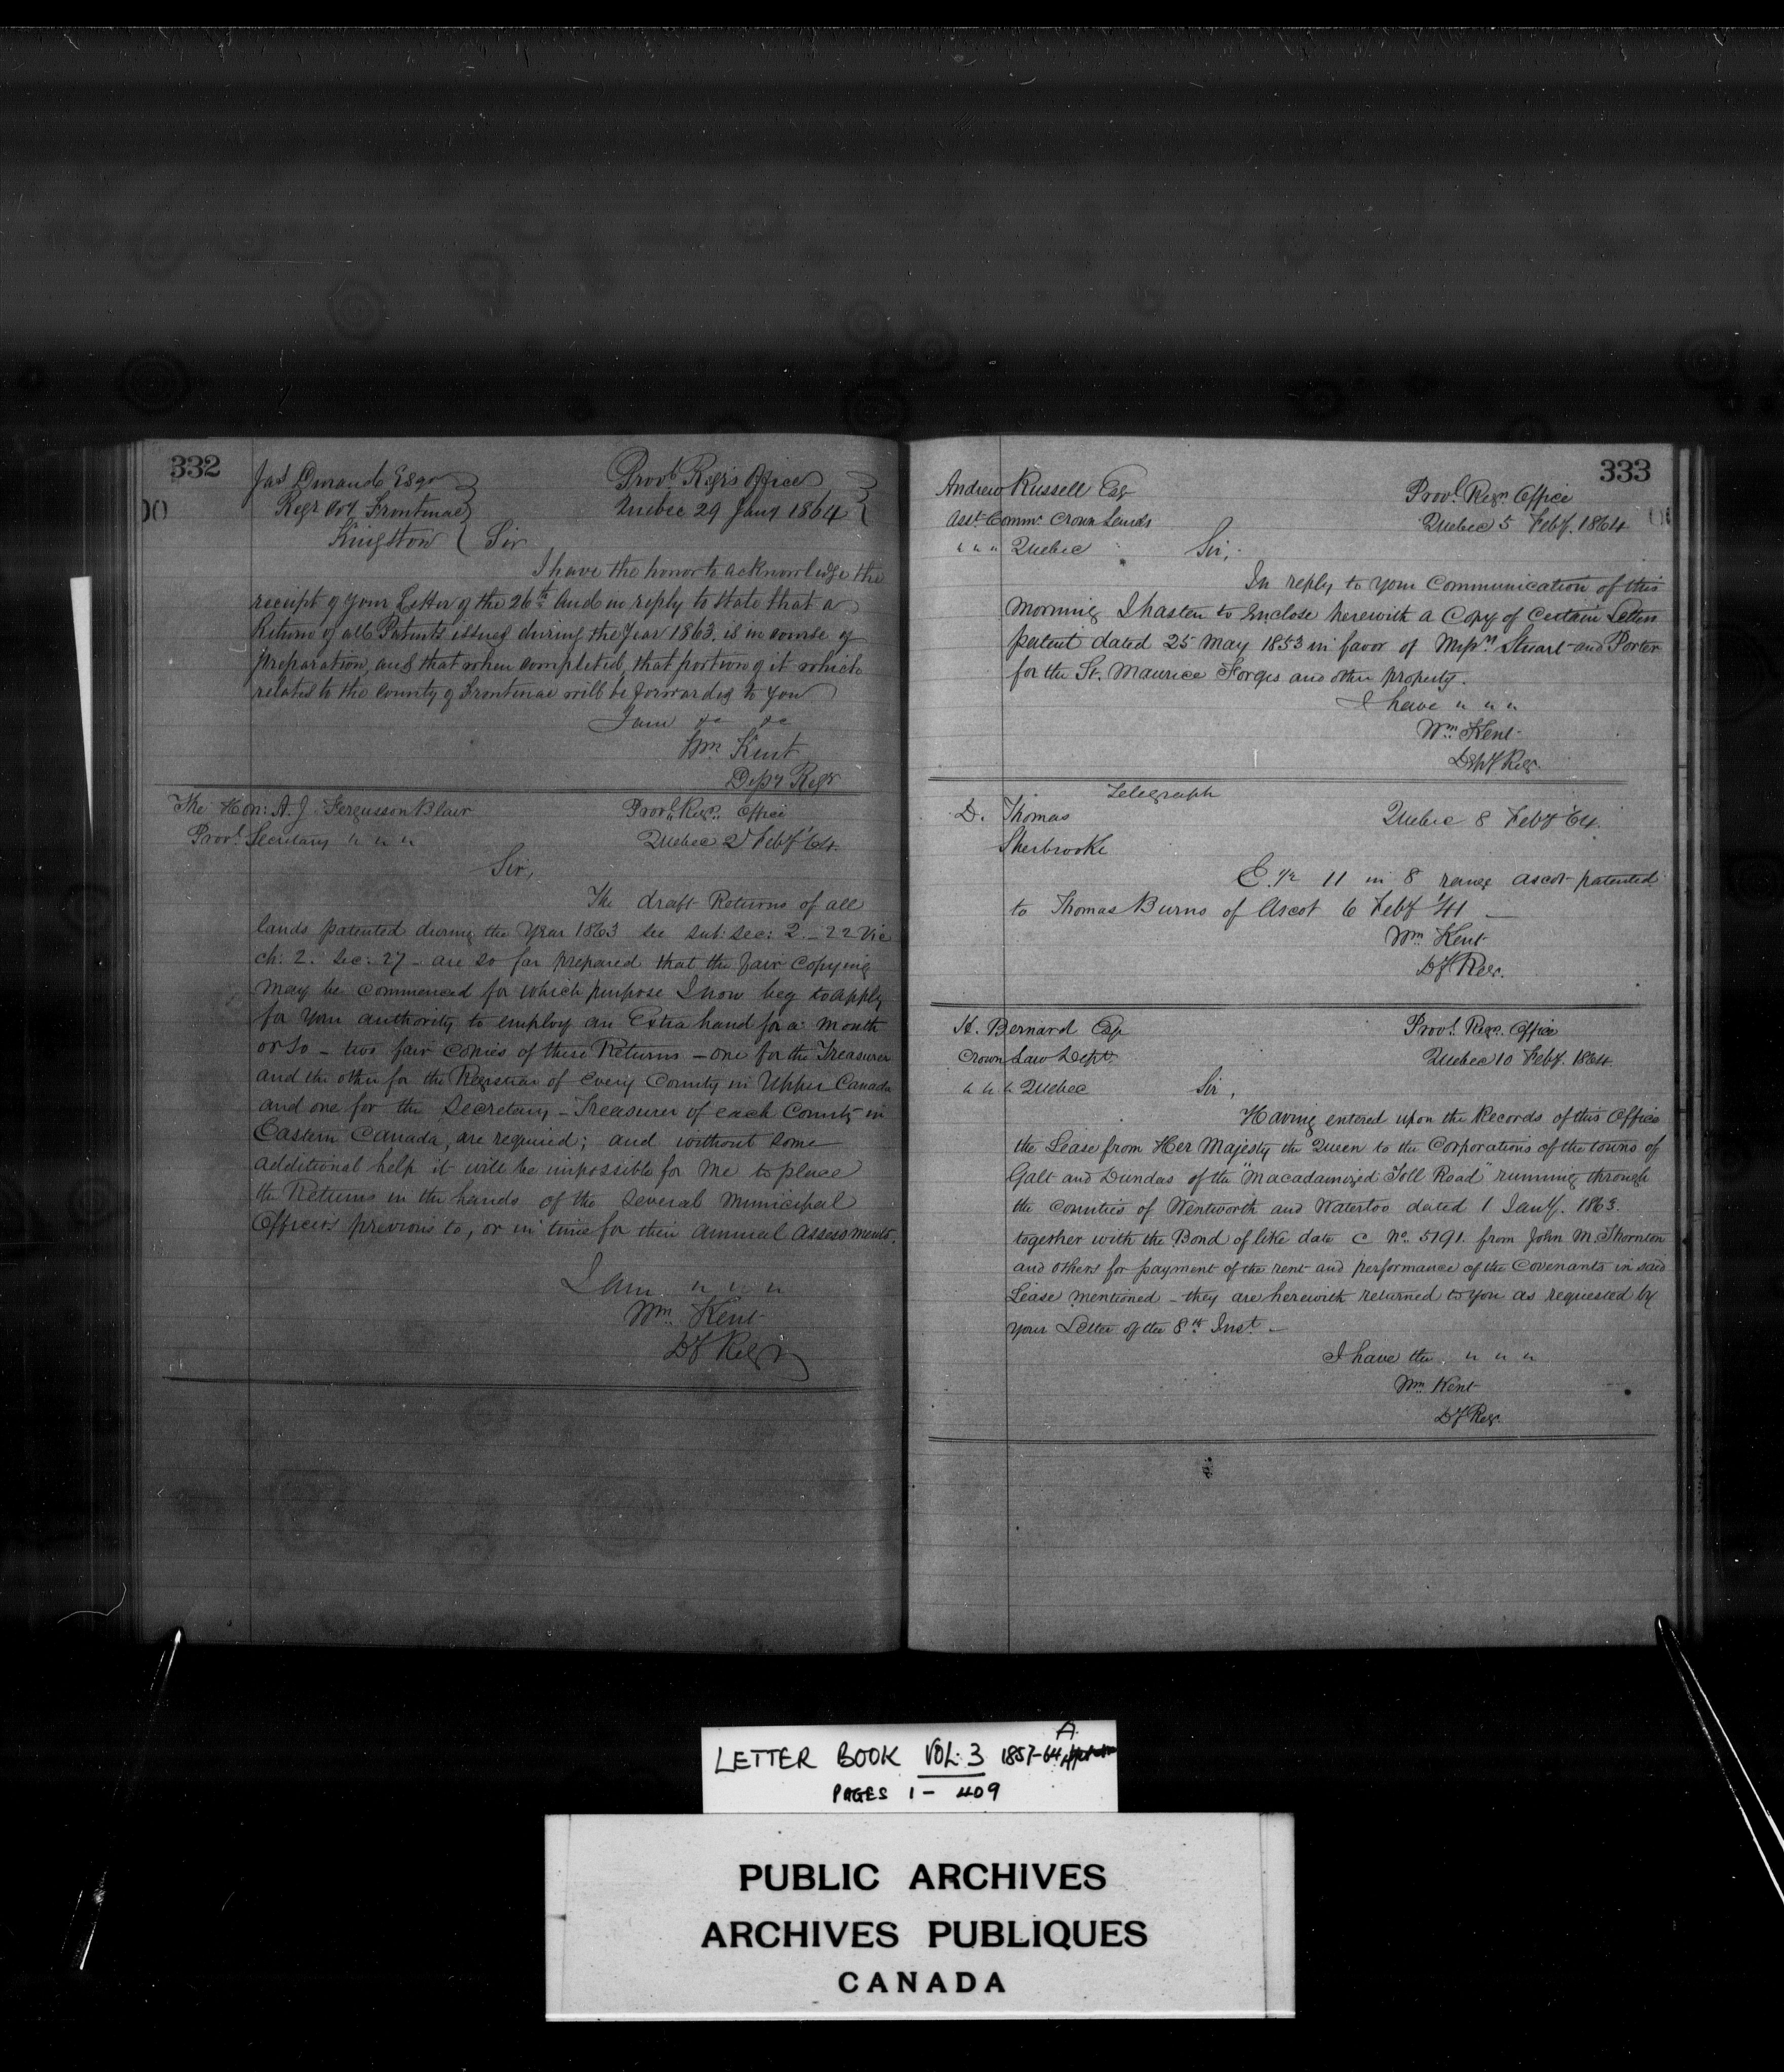 332
Jas Durand Esqr
Regr Coy Frontenac
Kingston
Provl Regr's Office
Quebec 29 Jany 1864
Sir
I have the honor to acknowledge the
receipt of your Letter of the 26th and in reply to state that a
Return of all Patents issued during the Year 1863. is in course of
preparation, and that when completed, that portion of it which
relates to the County of Frontenac will be forwarded to you
I am &c &c
Wm Kent
Depy Regr
The Hon: A. J. Fergusson Blair
Provl Secretary " " "
Provl Regr. Office
Quebec 2d Feby '64.
Sir,
The draft Returns of all
lands patented during the Year 1863 see sub: sec: 2 - 22 Vic
ch: 2. Sec: 27 - are so far prepared that the fair copying
may be commenced for which purpose I now beg to apply
for your authority to employ an Extra hand for a month
or so - two fair copies of these Returns - one for the Treasurer
and the other for the Registrar of every County in Upper Canada
and one for the Secretary - Treasurer of each County in
Eastern Canada, are required; and without some
additional help it will be impossible for me to place
the Returns in the hands of the several Municipal
Officers previous to, or in time for their annual assessments.
I am " " "
Wm. Kent
Dy Regr
333
Andrew Russell Esq
Asst. Commr. Crown Lands
" " " Quebec
Provl. Regrs. Office
Quebec 5 Feby. 1864
Sir,
In reply to your Communication of this
morning I hasten to enclose herewith a Copy of Certain Letters
patent dated 25 May 1853 in favor of Messrs. Stuart and Porter
for the St. Maurice Forges and other property.
I have " " "
Wm. Kent
Depy Regr.
Telegraph
D. Thomas
Sherbrooke
Quebec 8 Feby 64.
E. 1/2 11 in 8 range Ascot patented
to Thomas Burns of Ascot 6 Feby '41 -
Wm Kent
Dy Regr.
H. Bernard Esq
Crown Law Dept.
" " " Quebec
Provl. Regrs. Office
Quebec 10 Feby. 1864.
Sir,
Having entered upon the Records of this Office
the Lease from Her Majesty the Queen to the Corporations of the towns of
Galt and Dundas of the "Macadamized Toll Road" running through
the Counties of Wentworth and Waterloo dated 1 Jany. 1863.
together with the Bond of like date C No. 5191. from John M. Thornton
and others for payment of the rent and performance of the Covenants in said
Lease mentioned - they are herewith returned to you as requested by
your Letter of the 8th Inst. -
I have the " " "
Wm Kent
Dy Regr.
LETTER BOOK VOL. 3 1857-64 A
PAGES 1 - 409
PUBLIC ARCHIVES
ARCHIVES PUBLIQUES
CANADA